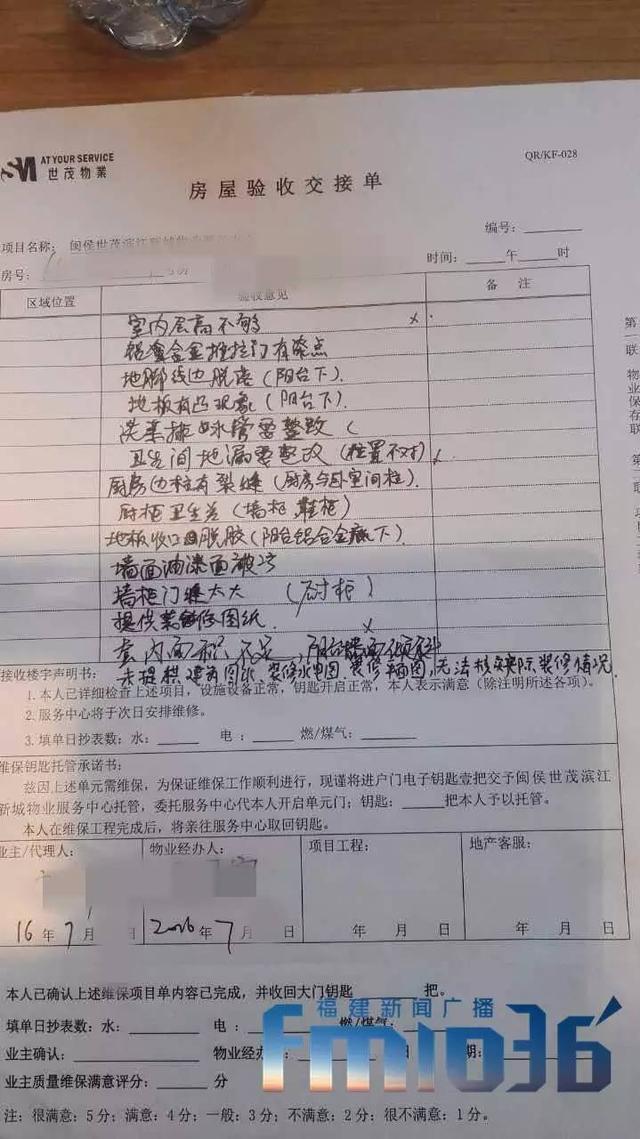 SM AT YOUR SERVICE
世茂物業
QR/KF-028
房屋验收交接单
编号:
项目名称: 闽侯世茂滨江新城
房号:
时间: 午 时
区域位置 验收意见 备 注
室内层高不够 x
铝合金推拉门有
地脚线边脱落(阳台下).
地板有凸现象(阳台下).
洗 管要整改 (
卫生间地漏要整改(位置不对)
厨房边柱有裂缝(厨房与卧室间柱).
厨柜卫生差(墙柜,鞋柜)
地板收口脱胶(阳台铝合金底下).
墙面油漆面破
墙柜门缝太大 (厨柜)
提供装修图纸. x
室内面积不足
未提供建筑图纸、装修水电图、装修 图,无法核实实际装修情况.
接收楼宇声明书:
1.本人已详细检查上述项目,设施设备正常,钥匙开启正常,本人表示满意(除注明所述各项)。
2.服务中心将于次日安排维修。
3.填单日抄表数:水: 电: 燃/煤气:
维保钥匙托管承诺书:
兹因上述单元需维保,为保证维保工作顺利进行,现谨将进户门电子钥匙壹把交予闽侯世茂滨江
新城物业服务中心托管,委托服务中心代本人开启单元门;钥匙: 把本人予以托管。
本人在维保工程完成后,将亲往服务中心取回钥匙。
业主/代理人: 物业经办人: 项目工程: 地产客服:
16年7月 日 2016年7月 日 年 月 日 年 月 日
本人已确认上述维保项目单内容已完成,并收回大门钥匙 把。
填单日抄表数:水: 电: 燃/煤气:
业主确认: 物业经办 日 期:
业主质量维保满意评分: 分
注:很满意:5分;满意:4分;一般:3分;不满意:2分;很不满意:1分。
第一联 物业保存联 第二联
福建新闻广播
fm1036